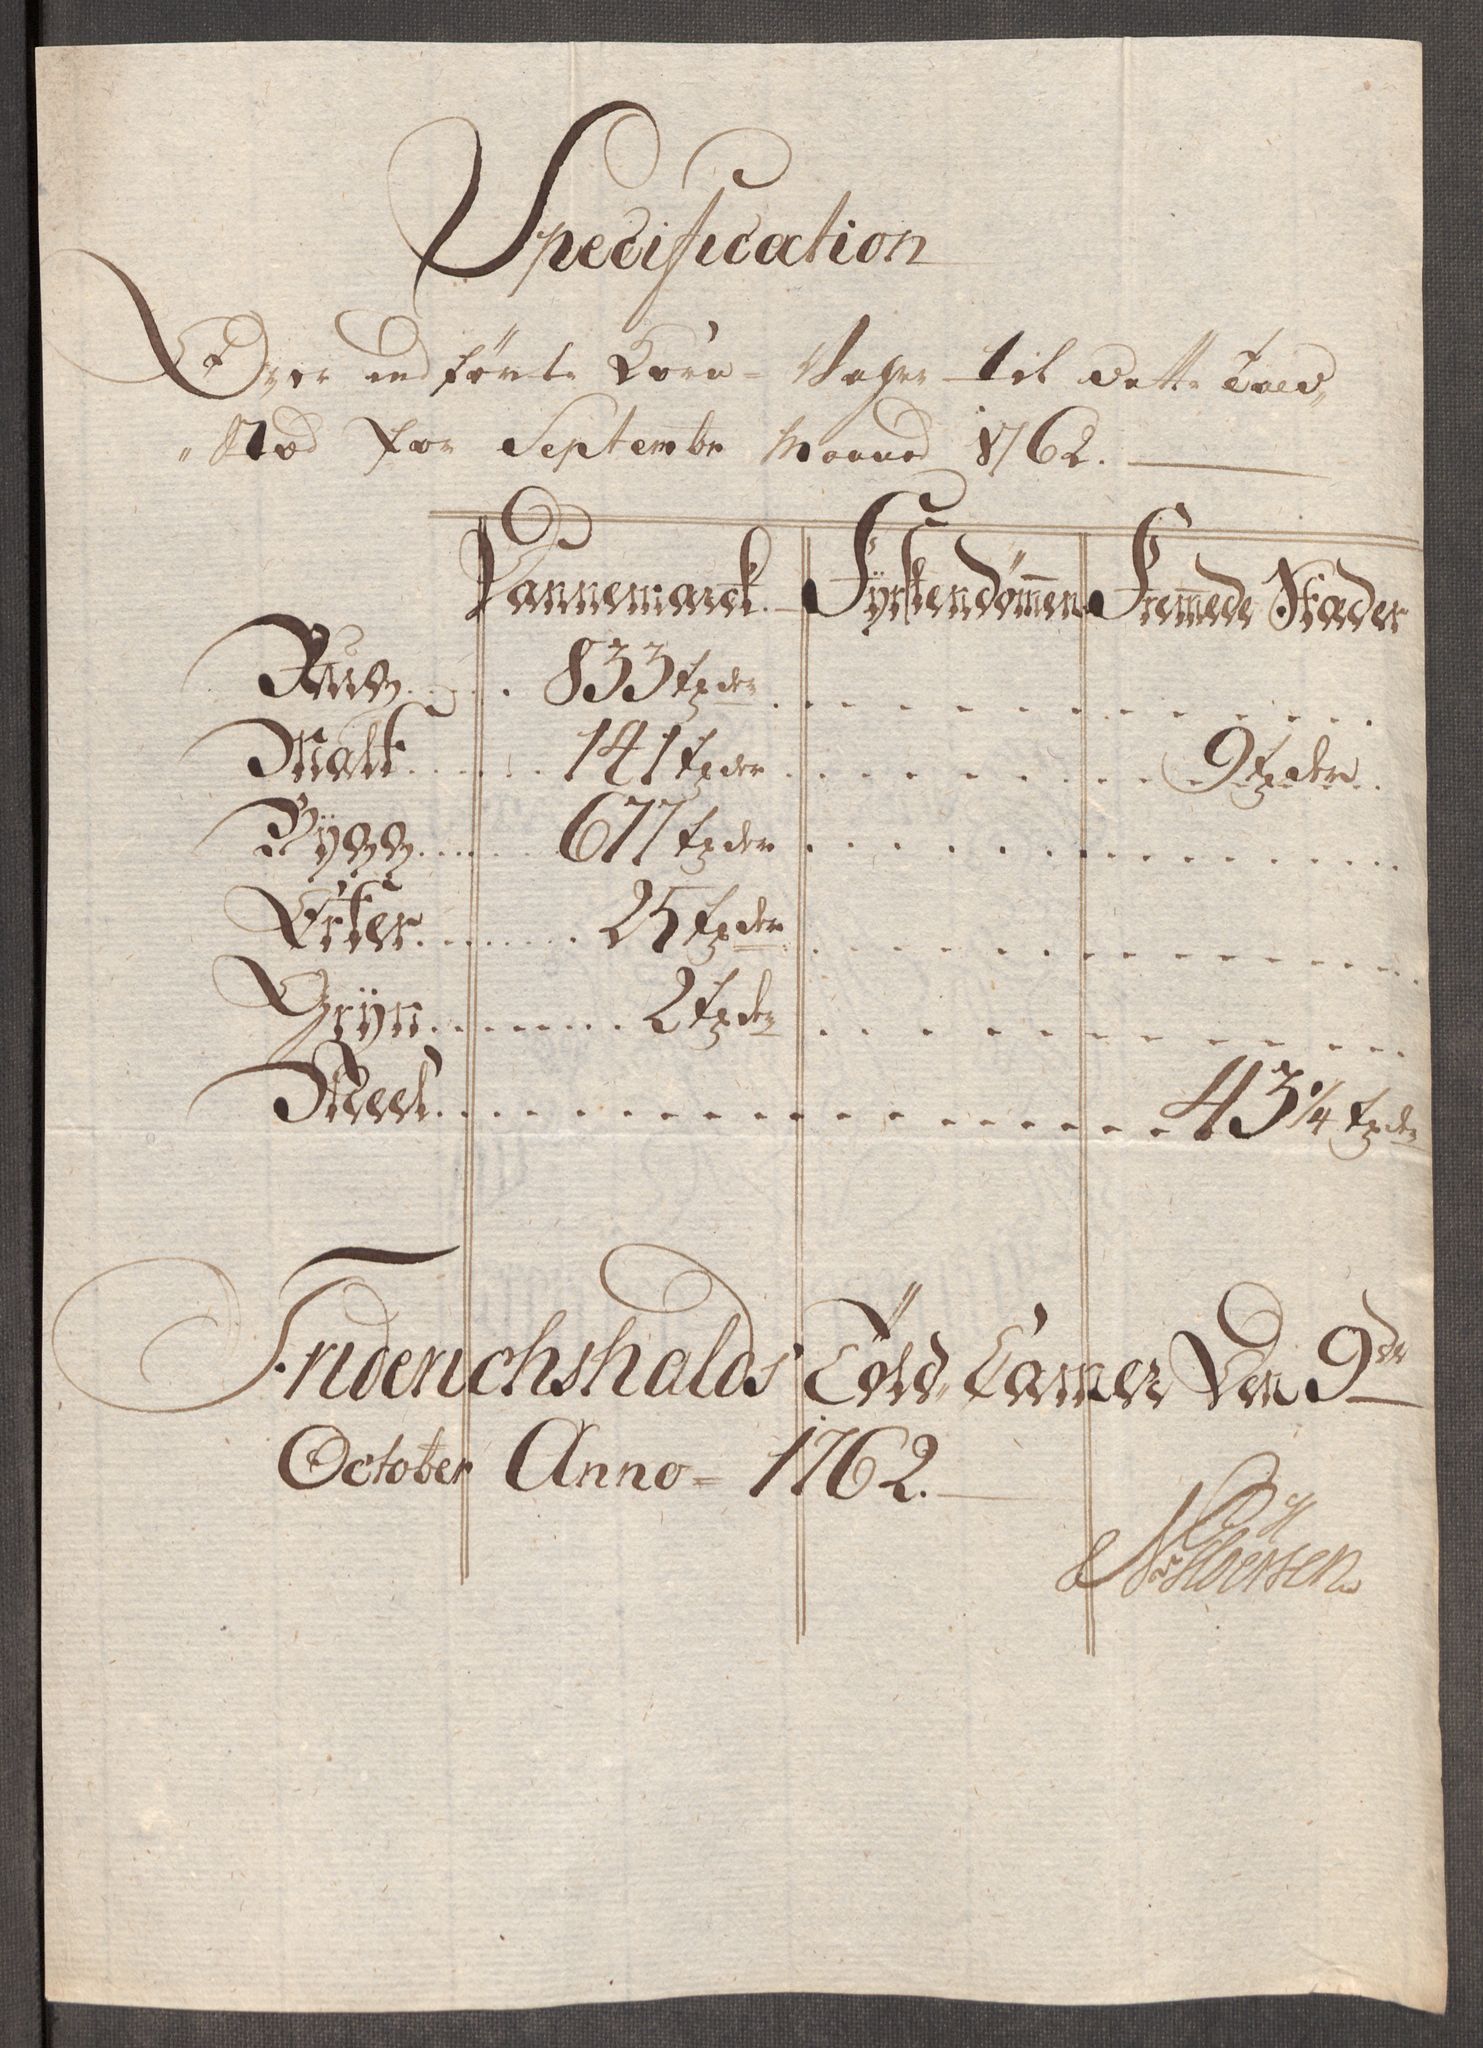 Specification
Over indførte Korn- Vahrer til dette Told,,
,,Stæd for Septembr Maaned 1762.
Dannemarck. Fyrstendømmen Fremmede Stæder
Rug 833 tønder
Malt 141 tønder 9 tønder
Bÿgg 677 tønder
Erter 25 tønder
Grÿn 2 tønder
Meel 43 1/4 tønder
Friderichshalds Told, Camer Den 9de
October Anno- 1762.